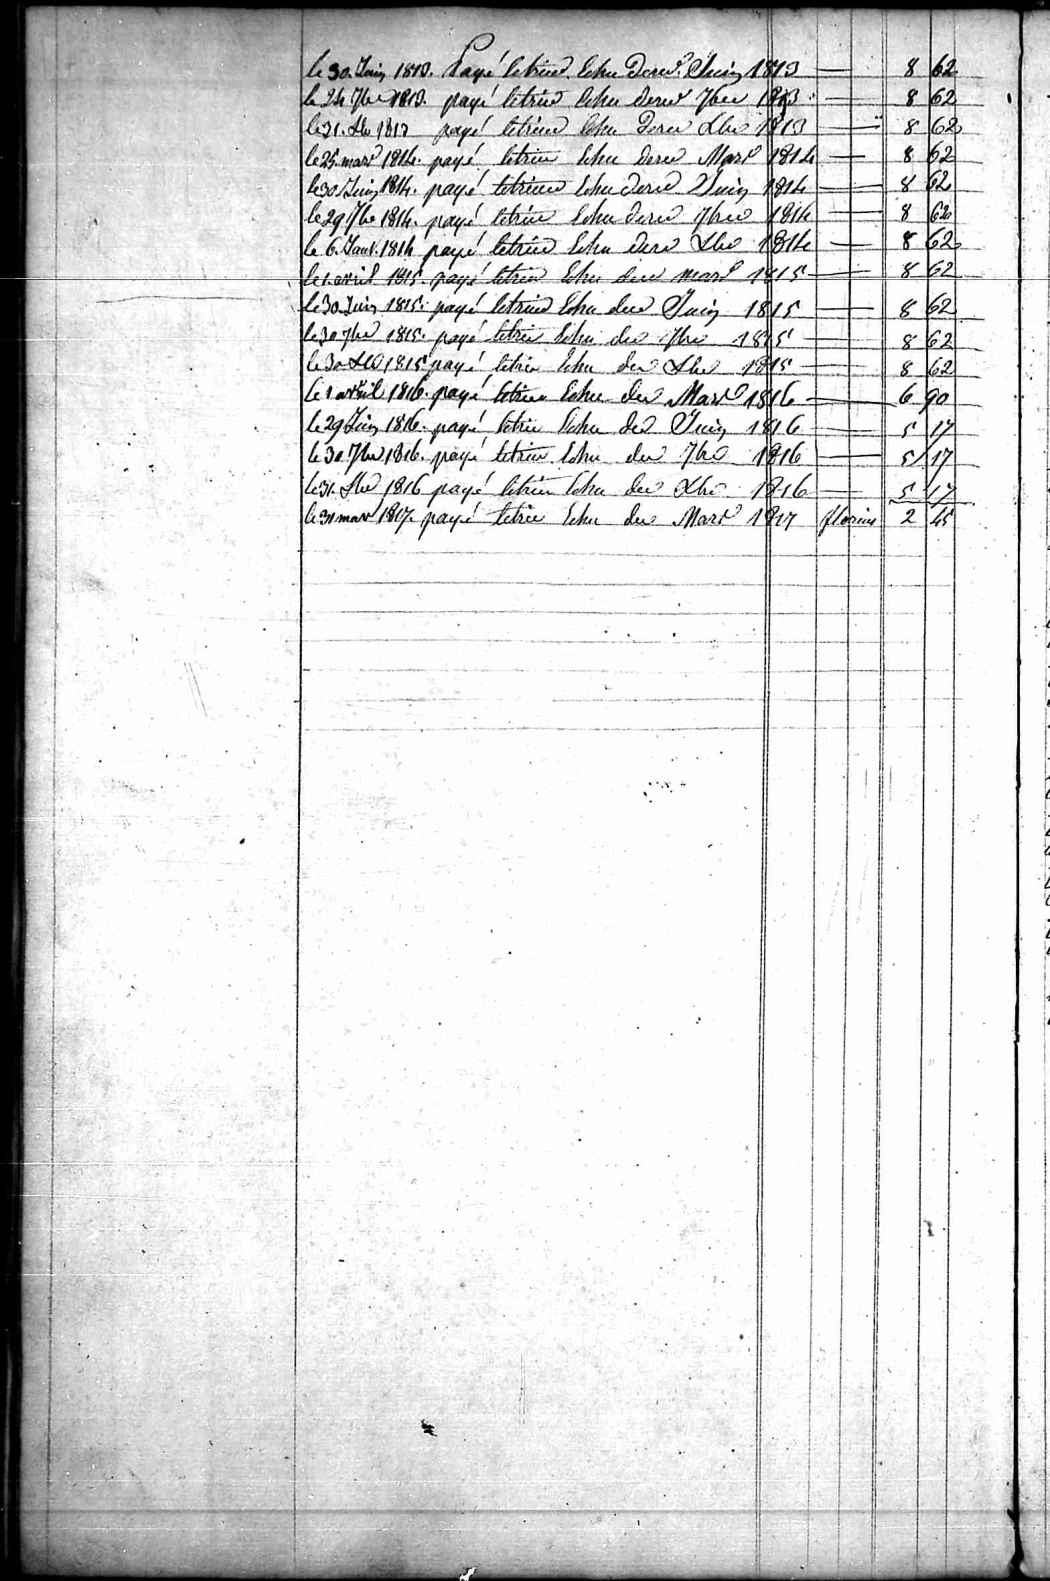 le 30. Juin 1813. Payé le trim. Echu dern. Juin 1813 — 8 62
le 24 7bre 1813. payé le trim Echu dern 7bre 1813. — 8 62
le 31. Xbre 1813 payé le trim Echu dern Xbre 1813 — 8 62
le 25. mars 1814. payé le trim Echu dern Mars 1814 — 8 62
le 30 Juin 1814. payé le trim Echu dern Juin 1814 — 8 62
le 29 7bre 1814. payé le trim Echu dern 7bre 1814 — 8 62
le 6. Janv. 1814 payé le trim Echu dern Xbre 1814 — 8 62
le 1. avril 1815. payé le trim Echu der mars 1815 — 8 62
le 30 Juin 1815. payé le trim Echu der Juin 1815 — 8 62
le 30 7bre 1815. payé le trim Echu der 7bre 1815 — 8 62
le 30 Xbre 1815 payé le trim Echu der Xbre 1815 — 8 62
le 1 avril 1816. payé le trim Echu der Mars 1816 — 6 90
le 29 Juin 1816. payé le trim Echu der Juin 1816 — 5 17
le 30 7bre 1816. payé le trim Echu der 7bre 1816 — 5 17
le 31. Xbre 1816 payé le trim Echu der Xbre 1816 — 5 17
le 31 mars 1817. payé le trim Echu der Mars 1817 florins 2 45